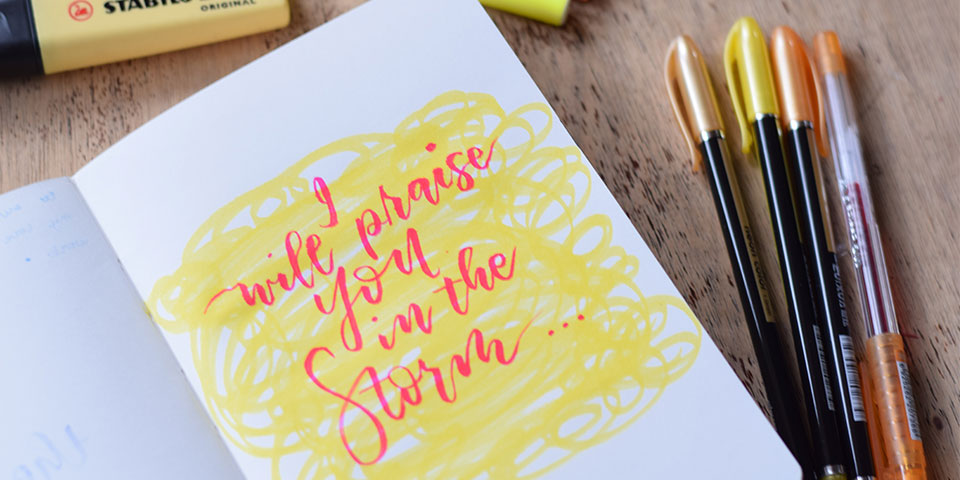 STABILO
ORIGINAL
I
will praise
you
in the
Storm...